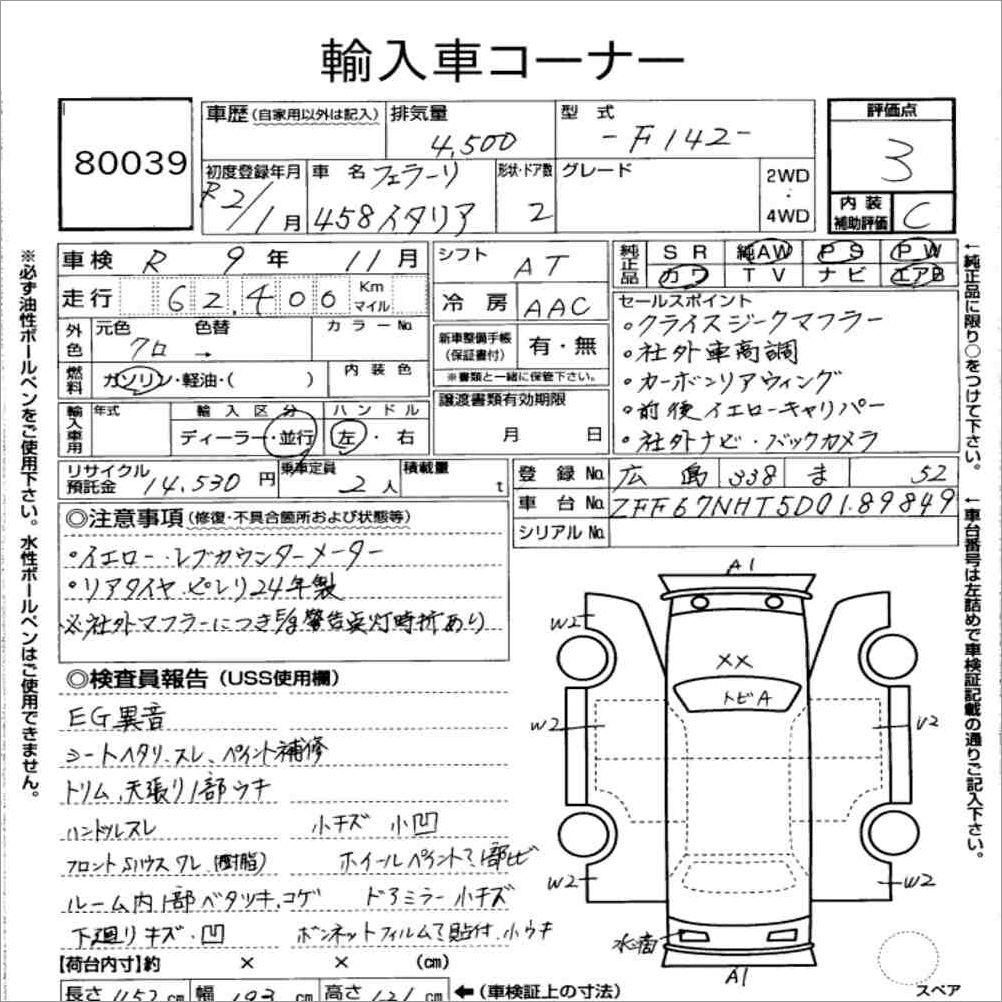 輸入車コーナー
80039
車歴(自家用以外は記入)
排気量 4,500
型式 -F142-
評価点 3
初度登録年月 R2/1月
車名 フェラーリ 458イタリア
形状・ドア数 2
グレード
2WD・4WD
内装補助評価 C
車検 R 9年 11月
走行 62,400 Km マイル
シフト AT
冷房 AAC
純正品 SR 純AW PS PW
カワ TV ナビ エアB
外色 元色 クロ → 色替
カラーNo.
燃料 ガソリン・軽油・( )
内装色
新車整備手帳(保証書付) 有・無
※書類と一緒に保管下さい。
セールスポイント
・クライスジークマフラー
・社外車高調
・カーボンリアウィング
・前後イエローキャリパー
・社外ナビ・バックカメラ
輸入車用 年式
輸入区分 ディーラー・並行
ハンドル 左・右
譲渡書類有効期限 月 日
リサイクル預託金 14,530円
乗車定員 2人
積載量 t
登録No. 広島 338 ま 52
車台No. ZFF67NHT5D0189849
シリアルNo.
◎注意事項(修復・不具合箇所および状態等)
・イエロー・レブカウンターメーター
・リアタイヤ・ピレリ24年製
※社外マフラーにつきE/g警告点灯時折あり
◎検査員報告(USS使用欄)
EG異音
シートヘタリ、スレ、ペイント補修
トリム、天張り1部ウキ
ハンドルスレ 小キズ 小凹
フロントSハウスワレ(樹脂) ホイールペイント?1部ヒビ
ルーム内1部ベタツキ、コゲ ドアミラー小キズ
下廻りキズ・凹 ボンネットフィルム?貼付、小ウキ
【荷台内寸】約 × × (cm)
長さ 452cm 幅 193cm 高さ 121cm ←(車検証上の寸法)
A1
W2
XX
トビA
W2
U2
W2
W2
水滴
A1
スペア
※必ず油性ボールペンをご使用下さい。水性ボールペンはご使用できません。
←純正品に限り○をつけて下さい。
←車台番号は左詰めで車検証記載の通りご記入下さい。